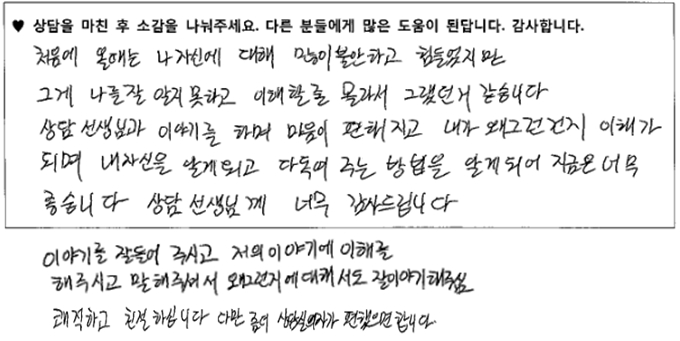 ♥ 상담을 마친 후 소감을 나눠주세요. 다른 분들에게 많은 도움이 된답니다. 감사합니다.
처음에 올때는 나 자신에 대해 많이 불안하고 힘들었지만
그게 나를 잘 알지 못하고 이해할줄 몰라서 그랬던거 같습니다
상담 선생님과 이야기를 하며 마음이 편해지고 내가 왜그런건지 이해가
되며 내자신을 알게되고 다독여 주는 방법을 알게되어 지금은 너무
좋습니다 상담 선생님께 너무 감사드립니다
이야기를 잘들어 주시고 저의 이야기에 이해를
해주시고 말해주셔서 왜그런지에 대해서도 잘이야기해주심
쾌적하고 친절하십니다 다만 좀더 상담실의자가 편했으면 합니다.